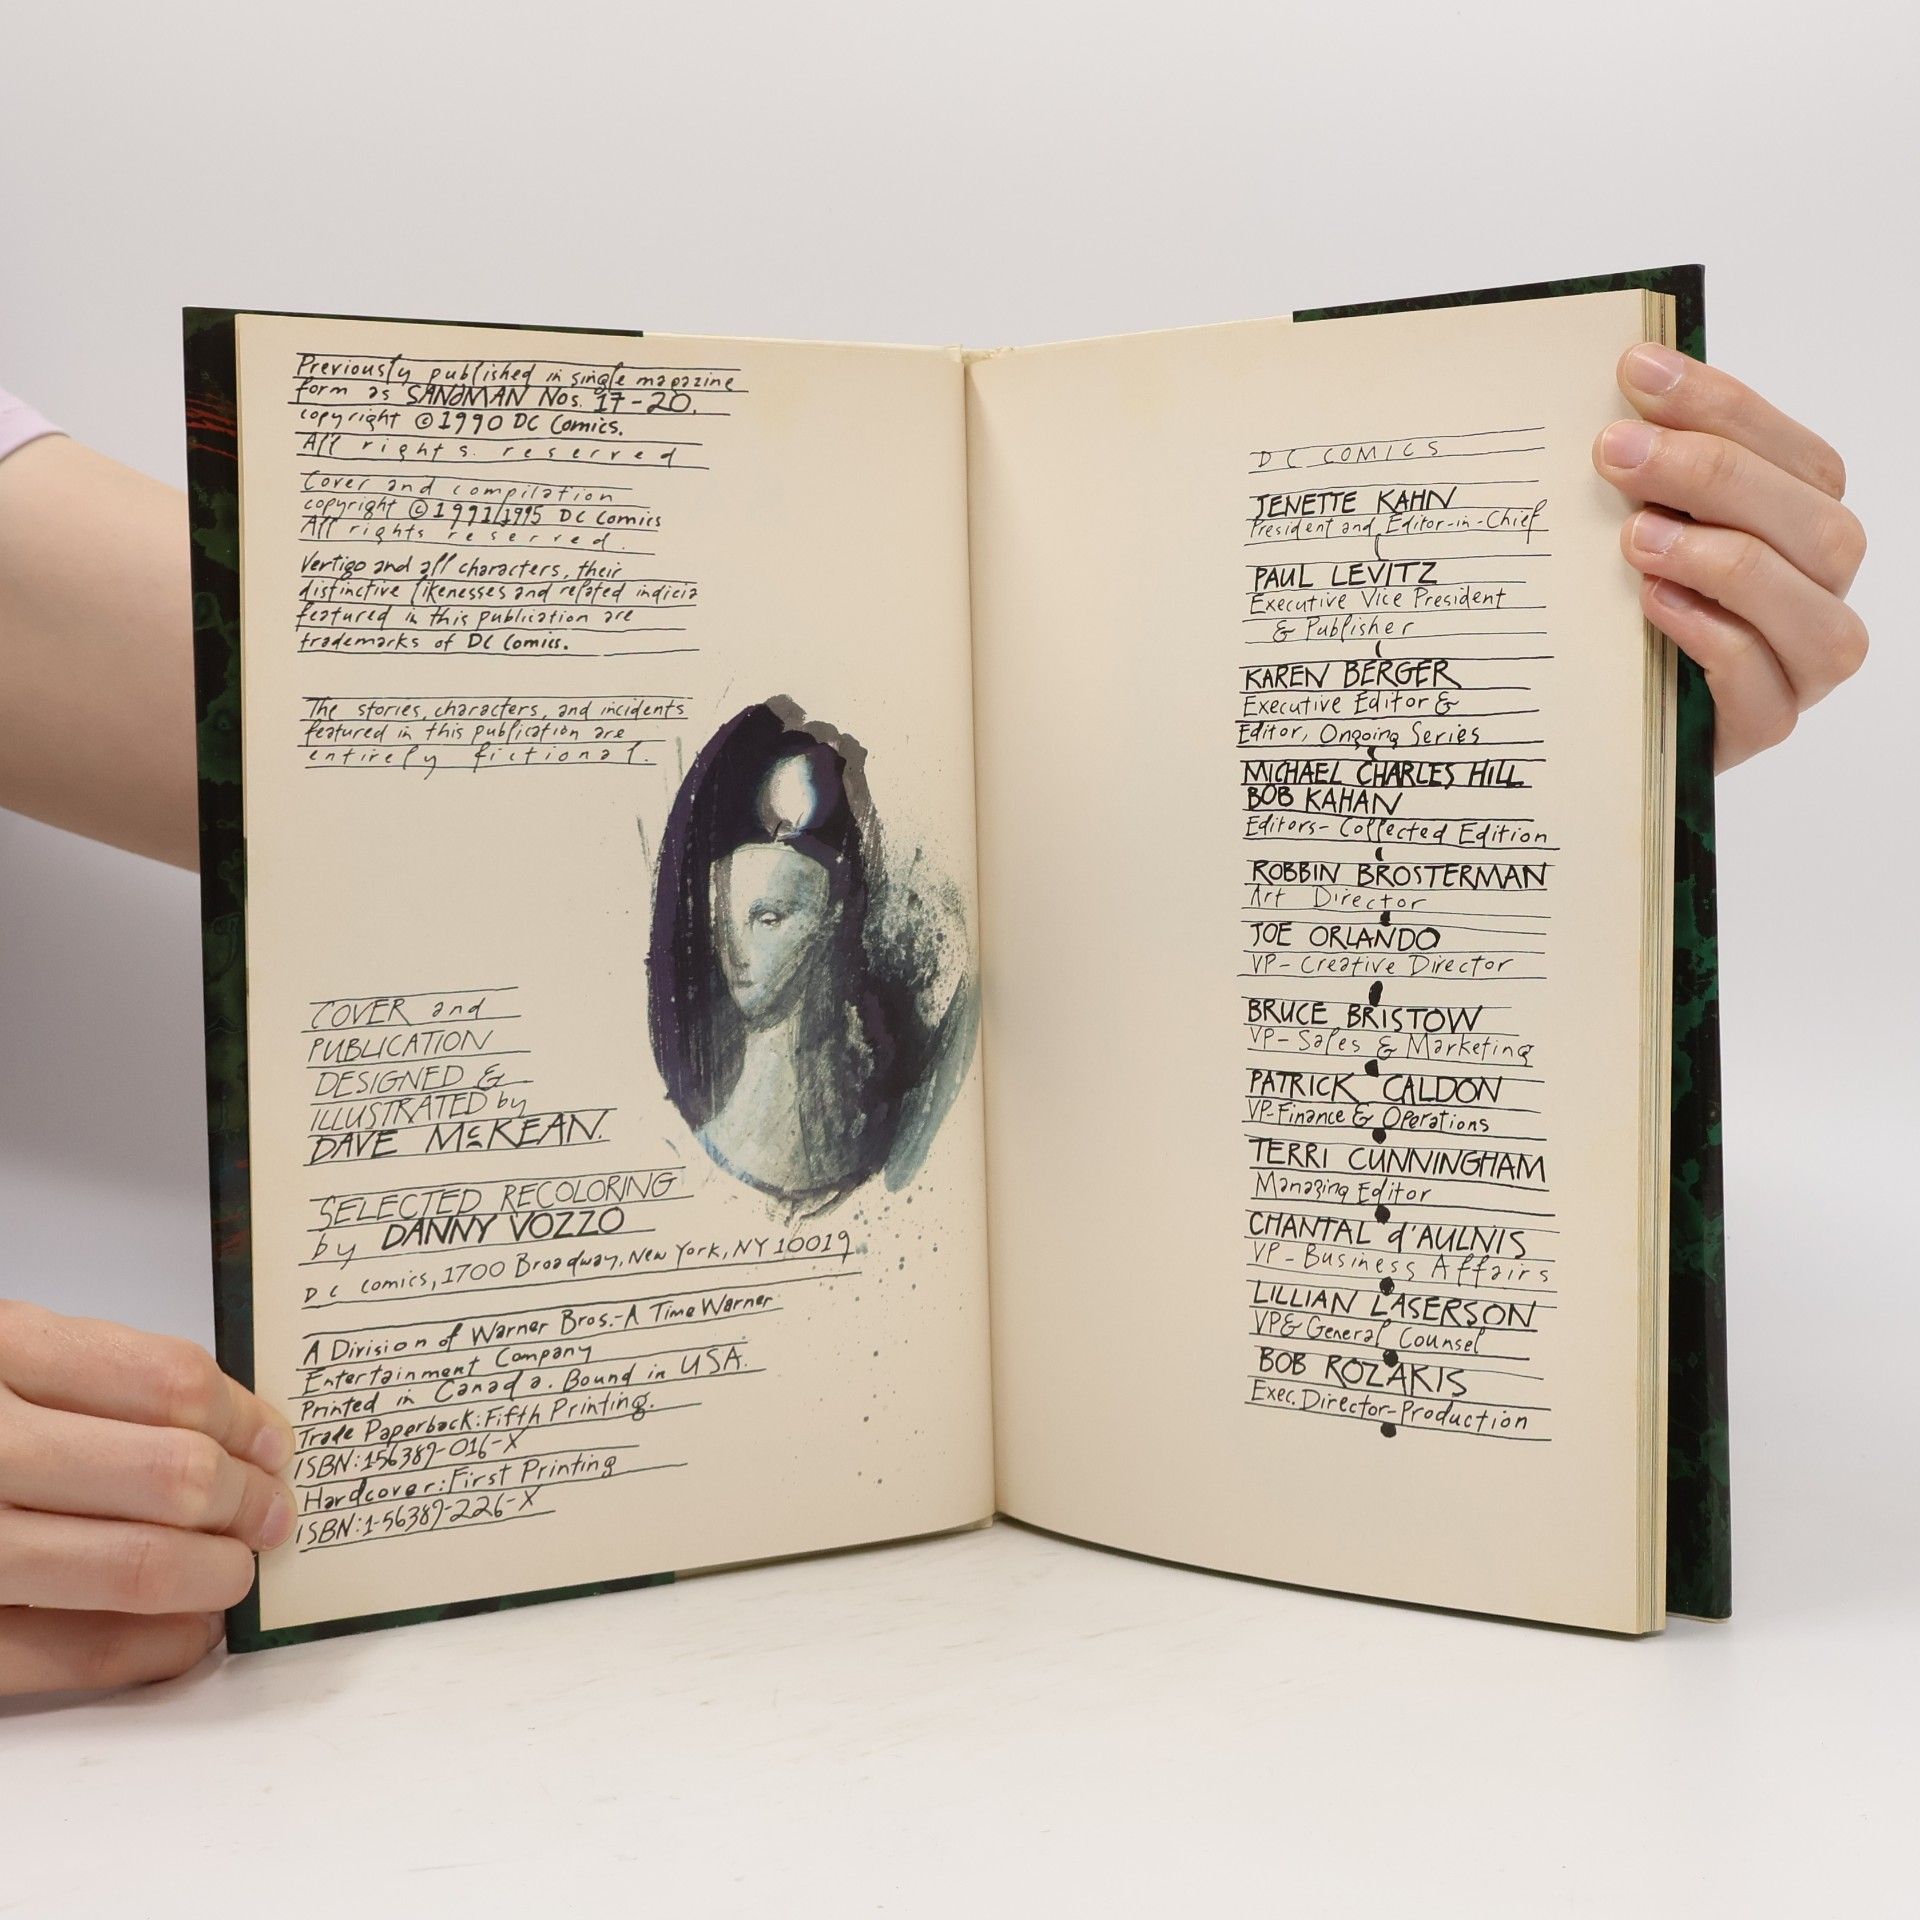 Previously published in single magazine
form as SANdMAN Nos. 17-20.
copyright ©1990 DC Comics.
All rights reserved
Cover and compilation
copyright ©1991/1995 DC Comics
All rights reserved.
Vertigo and all characters, their
distinctive likenesses and related indicia
featured in this publication are
trademarks of DC Comics.
The stories, characters, and incidents
featured in this publication are
entirely fictional.
COVER and
PUBLICATION
DESIGNED &
ILLUSTRATED by
DAVE McKEAN.
SELECTED RECOLORING
by DANNY VOZZO
DC comics, 1700 Broadway, New York, NY 10019
A Division of Warner Bros.-A Time Warner
Entertainment Company
Printed in Canada. Bound in USA.
Trade Paperback: Fifth Printing.
ISBN: 156389-016-X
Hardcover: First Printing
ISBN: 1-56389-226-X
DC COMICS
JENETTE KAHN
President and Editor-in-Chief
PAUL LEVITZ
Executive Vice President
& Publisher
KAREN BERGER
Executive Editor &
Editor, Ongoing Series
MICHAEL CHARLES HILL
BOB KAHAN
Editors-Collected Edition
ROBBIN BROSTERMAN
Art Director
JOE ORLANDO
VP-Creative Director
BRUCE BRISTOW
VP-Sales & Marketing
PATRICK CALDON
VP-Finance & Operations
TERRI CUNNINGHAM
Managing Editor
CHANTAL d'AULNIS
VP-Business Affairs
LILLIAN LASERSON
VP & General Counsel
BOB ROZAKIS
Exec. Director-Production